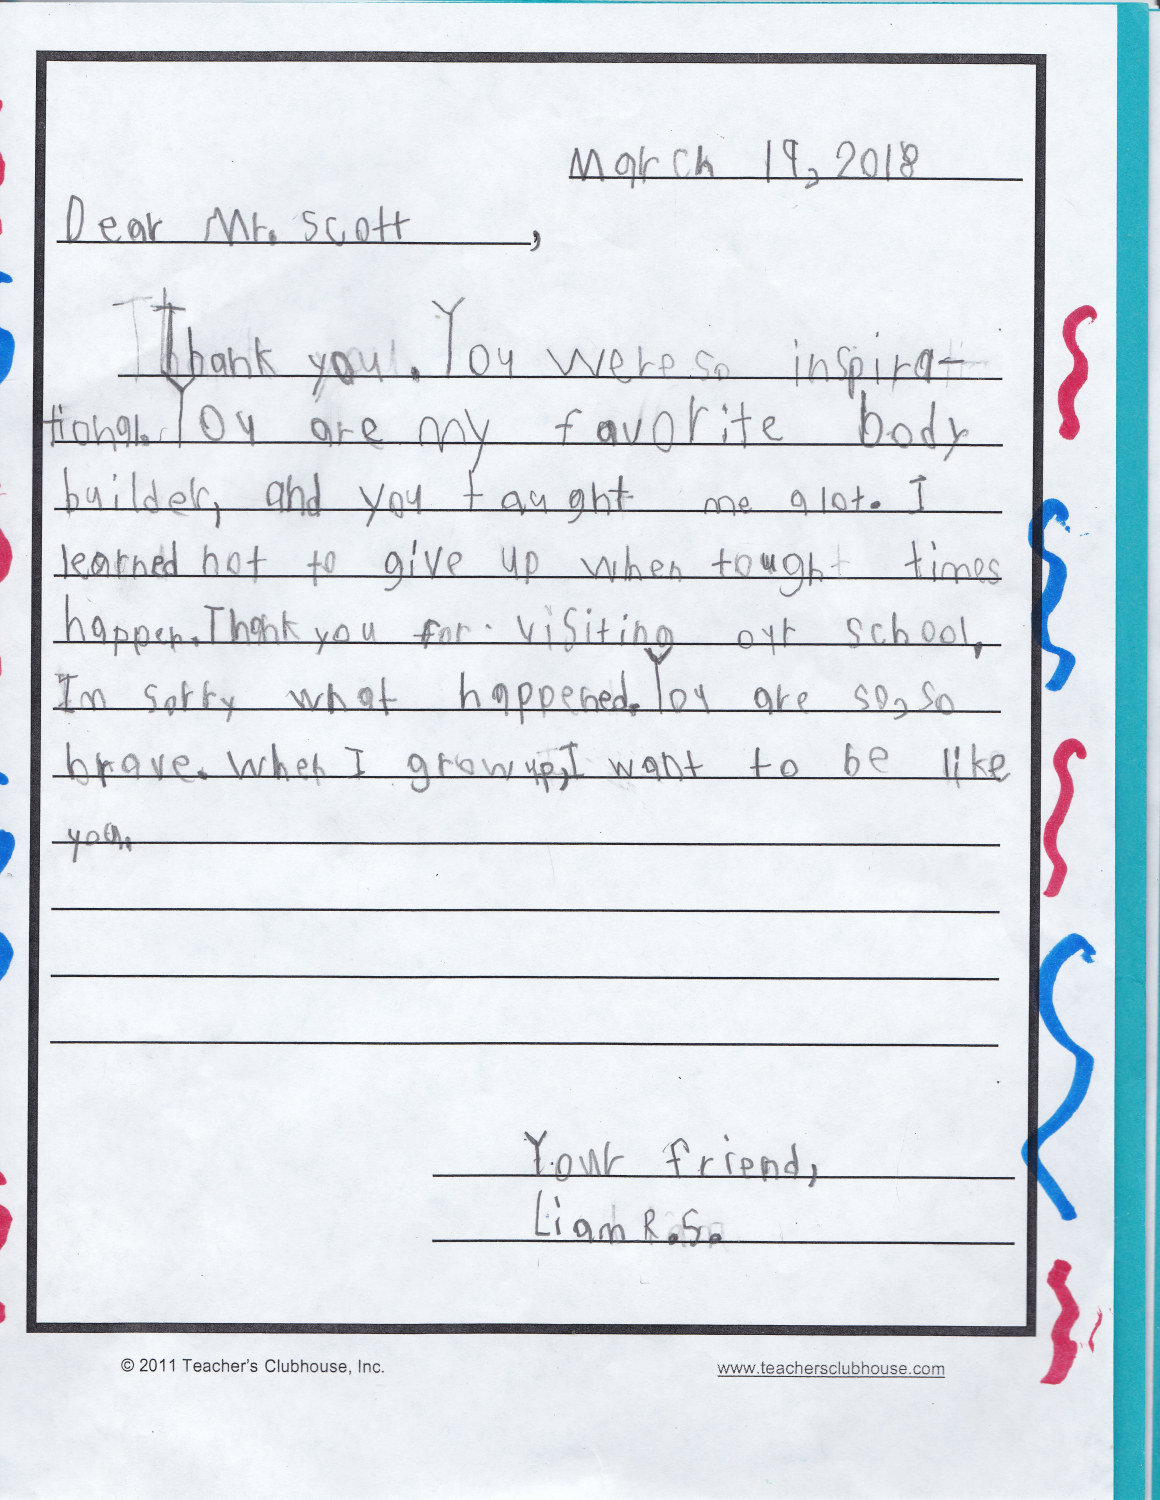 March 19, 2018
Dear Mr. Scott,
Thank you. You were so inspira-
tional. You are my favorite body
builder, and you taught me alot. I
learned not to give up when tought times
happen. Thank you for visiting our school,
Im sorry what happened. You are so, so
brave. When I grow up, I want to be like
you.
Your friend,
Liam R.S.
© 2011 Teacher's Clubhouse, Inc.
www.teachersclubhouse.com